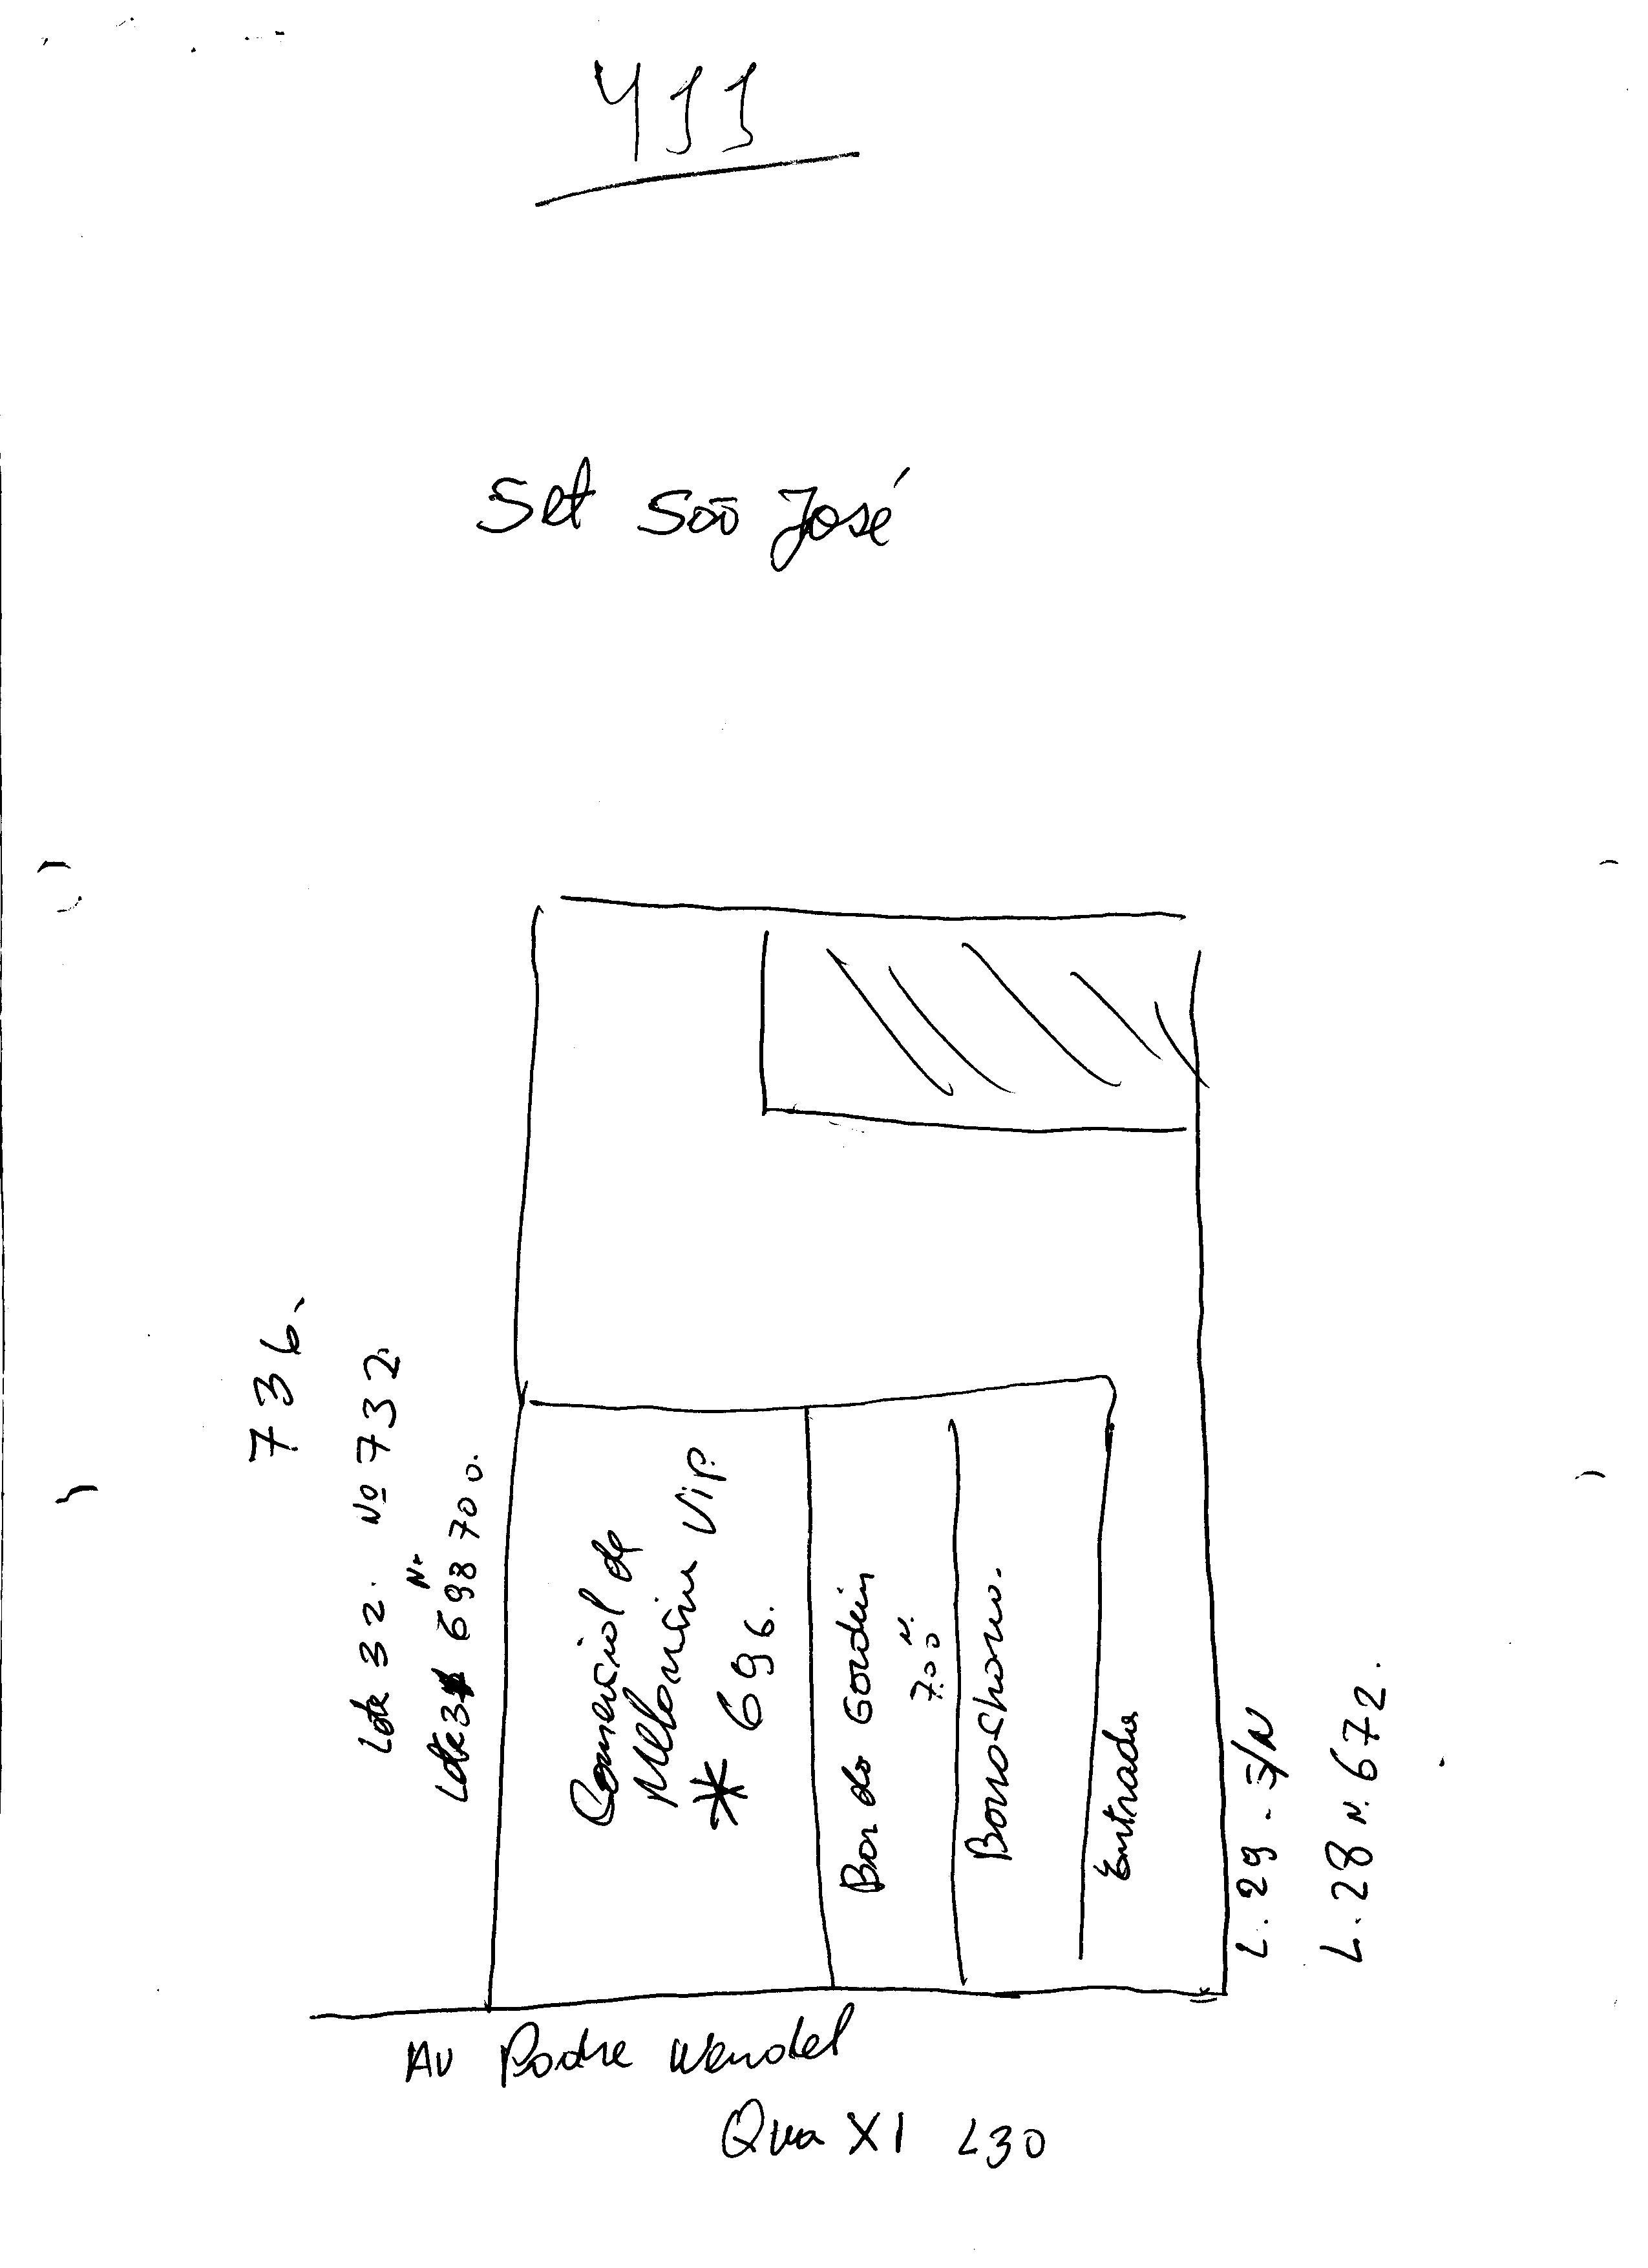 411
Set São José
736.
Lote 32. Nº 732.
Lote 31 Nº 698 700.
Comercial de
Vip.
* 696.
Bar do Gordin
700 N.
Borracharia.
Entrada
L. 29 - S/N
L. 28 N. 672.
Av Padre Wendel
Qua XI L30